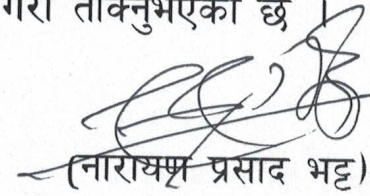 गरी तोक्नुभएको छ ।
(नारायण प्रसाद भट्ट)